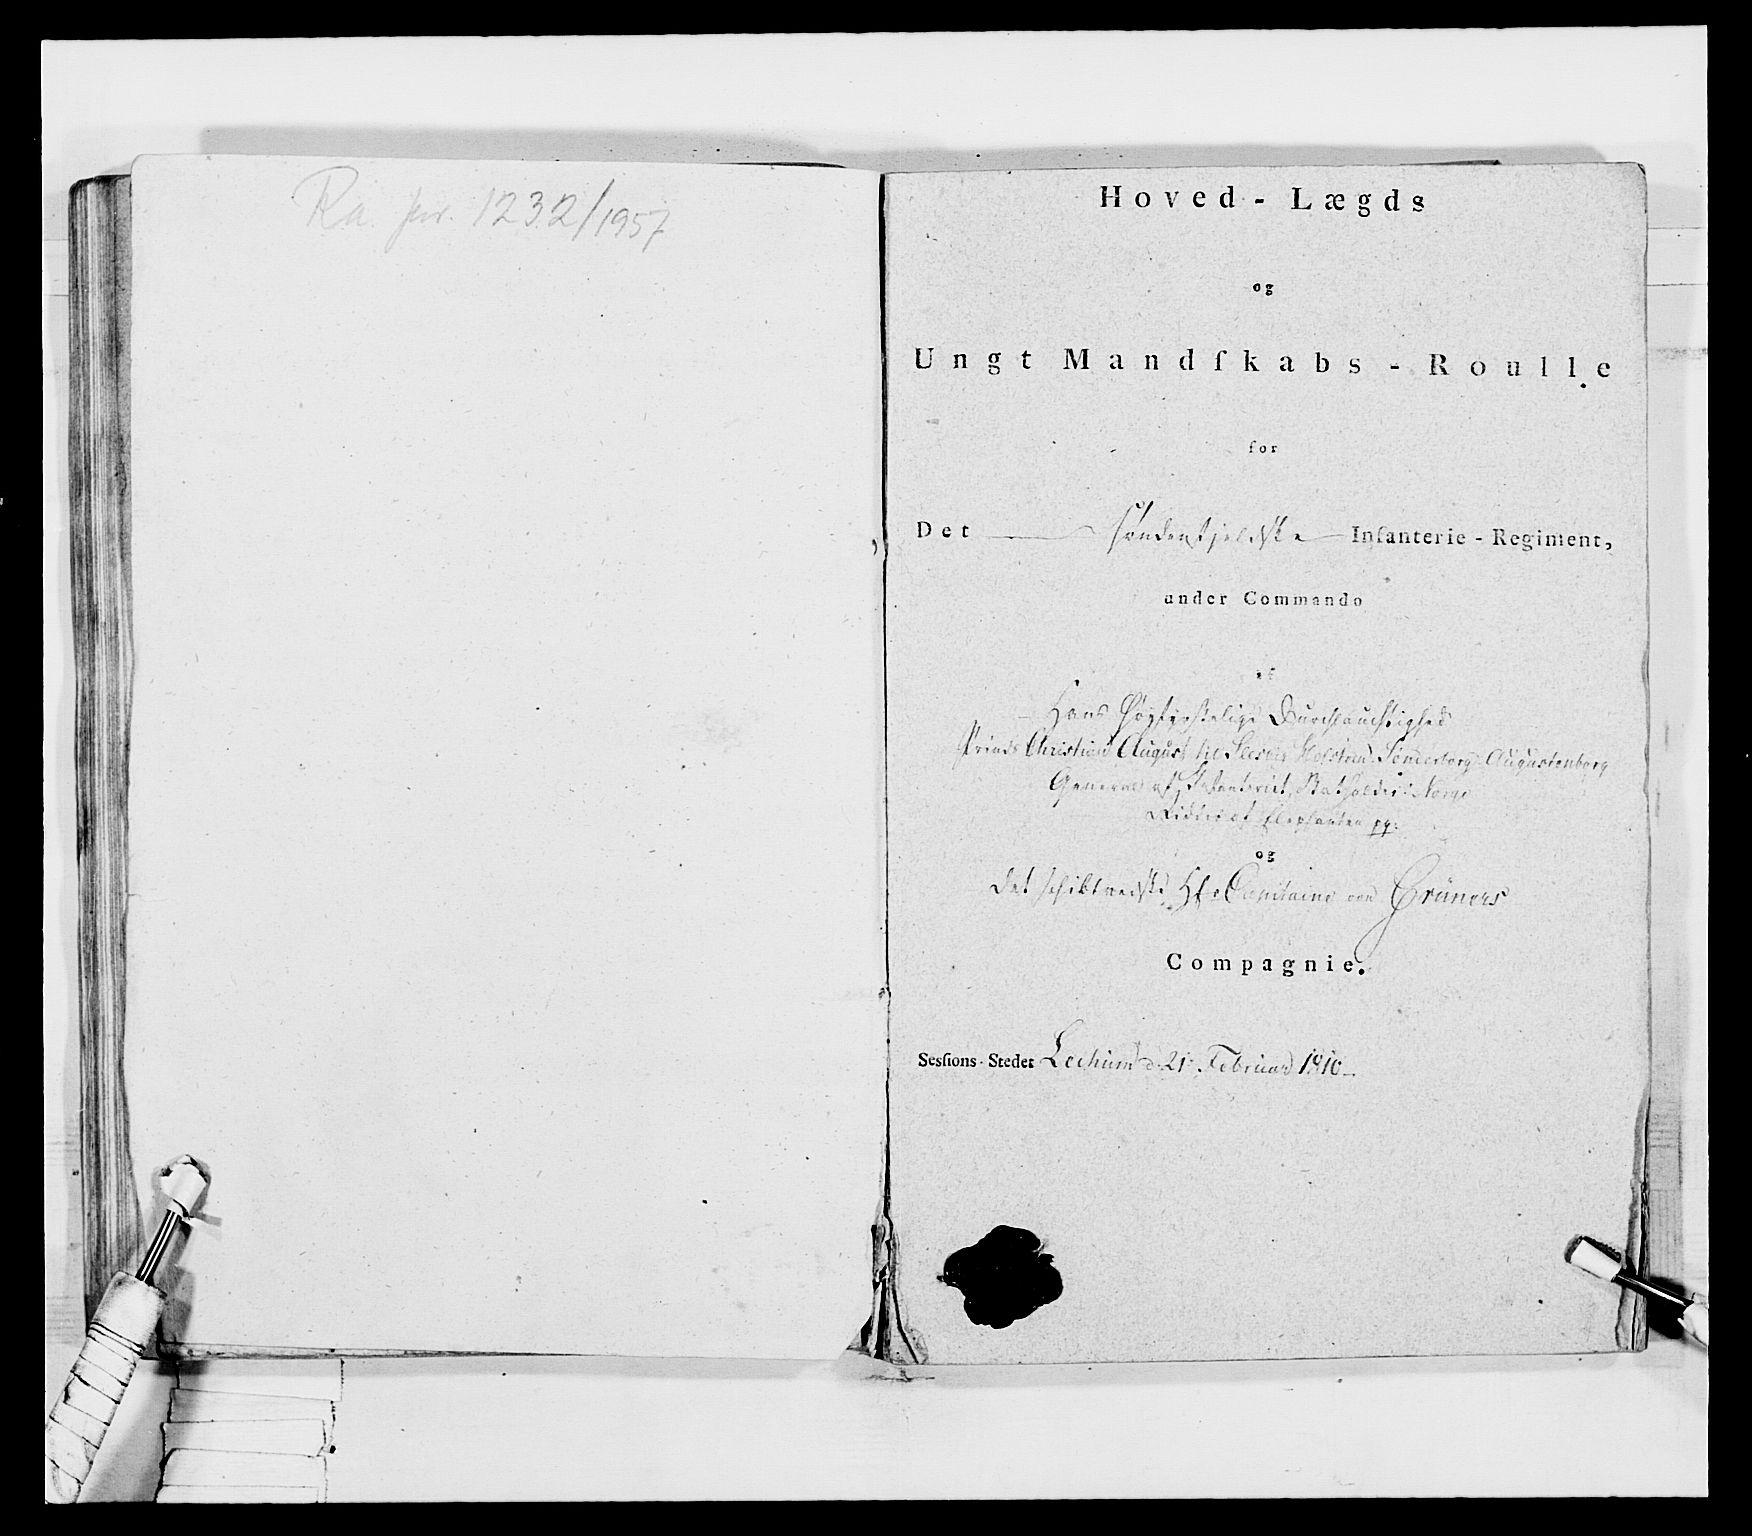 Ra. jnr. 1232/1957
Hoved - Lægds
og
Ungt Mandſkabs - Roulle
for
Det Söndenfjeldske Infanterie - Regiment,
under Commando
af
Hans Høyfyrstelige Durchlauchtighed
Prinds Christian August til Slesvig Holsteen Sonderborg Augustenborg
General af Infanteriet, Statholder i Norge
Ridder af Elephanten pp:
og
det schibtvedtske H: Capitaine von Grüners
Compagnie.
Sesſions-Stedet Lechum d. 21 Februar 1810